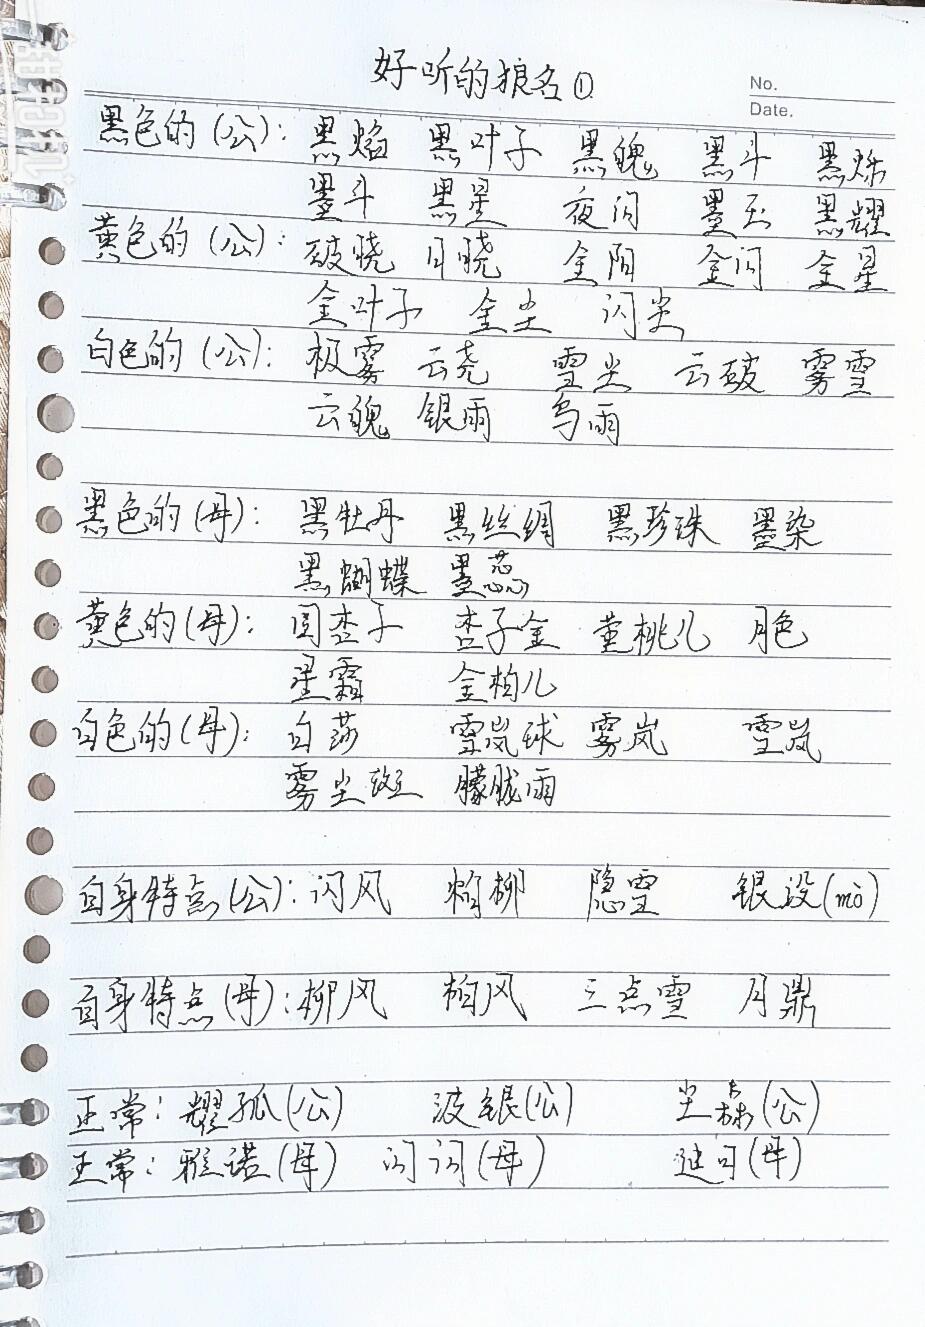 好听的狼名①
No.
Date.
黑色的(公): 黑焰 黑叶子 黑魄 黑斗 黑烁
墨斗 黑星 夜闪 墨玉 黑耀
黄色的(公): 破晓 月晓 金阳 金闪 金星
金叶子 金尘 闪尘
白色的(公): 极雾 云尧 雪尘 云破 雾雪
云魄 银雨 乌雨
黑色的(母): 黑牡丹 黑丝绸 黑珍珠 墨染
黑蝴蝶 墨蕊
黄色的(母): 圆杏子 杏子金 黄桃儿 月色
星霜 金柏儿
白色的(母): 白莎 雪岚球 雾岚 雪岚
雾尘斑 朦胧雨
自身特点(公): 闪风 焰柳 隐雪 银没(mò)
自身特点(母): 柳风 柏风 三点雪 月鼎
正常: 耀孤(公) 波银(公) 尘森(公)
正常: 雅诺(母) 闪闪(母) 迪可(母)